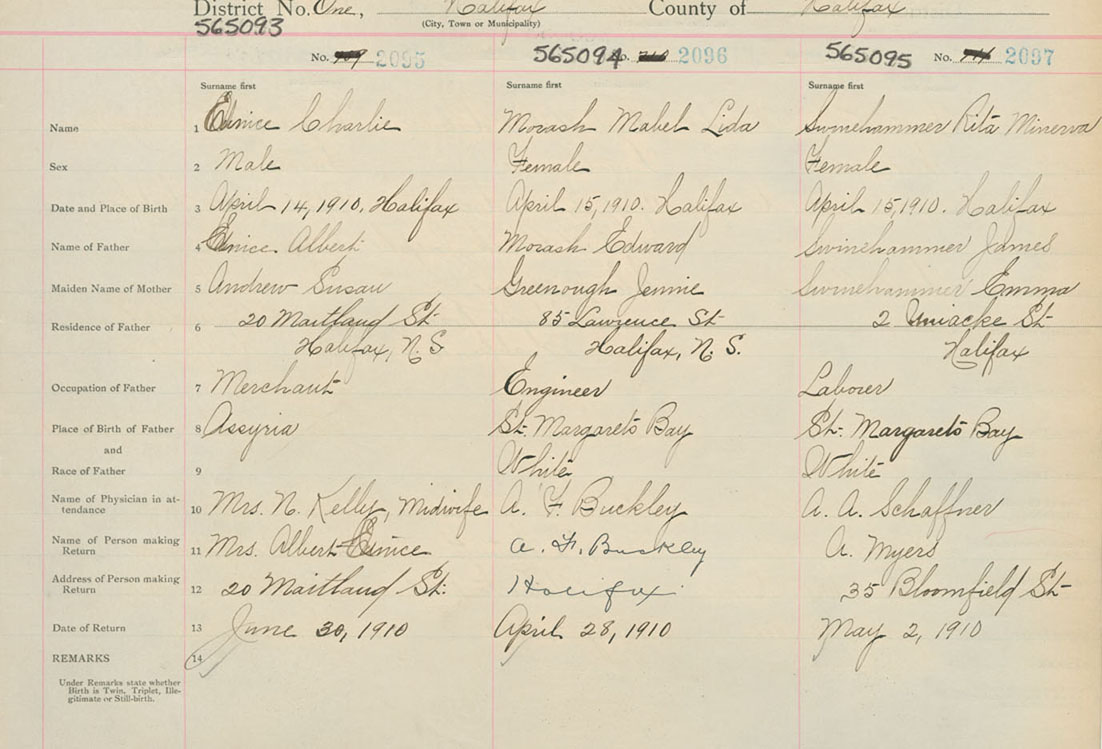 District No. One, Halifax County of Halifax
(City, Town or Municipality)
565093
No. 2095 565094 No. 2096 565095 No. 2097
Surname first Surname first Surname first
Name 1 Eunice Charlie Morash Mabel Lida Swinehammer Rita Minerva
Sex 2 Male Female Female
Date and Place of Birth 3 April 14, 1910. Halifax April 15, 1910. Halifax April 15, 1910. Halifax
Name of Father 4 Eunice Albert Morash Edward Swinehammer James
Maiden Name of Mother 5 Andrew Susan Greenough Jennie Swinehammer Emma
Residence of Father 6 20 Maitland St. 85 Lawrence St 2 Uniacke St
Halifax, N. S Halifax, N. S. Halifax
Occupation of Father 7 Merchant Engineer Laborer
Place of Birth of Father 8 Assyria St. Margarets Bay St. Margarets Bay
and
Race of Father 9 White White
Name of Physician in at-
tendance 10 Mrs. N. Kelly, Midwife A. F. Buckley A. A. Schaffner
Name of Person making
Return 11 Mrs. Albert Eunice A. F. Buckley A. Myers
Address of Person making
Return 12 20 Maitland St. Halifax 35 Bloomfield St
Date of Return 13 June 30, 1910 April 28, 1910 May 2, 1910
REMARKS 14
Under Remarks state whether
Birth is Twin, Triplet, Ille-
gitimate or Still-birth.